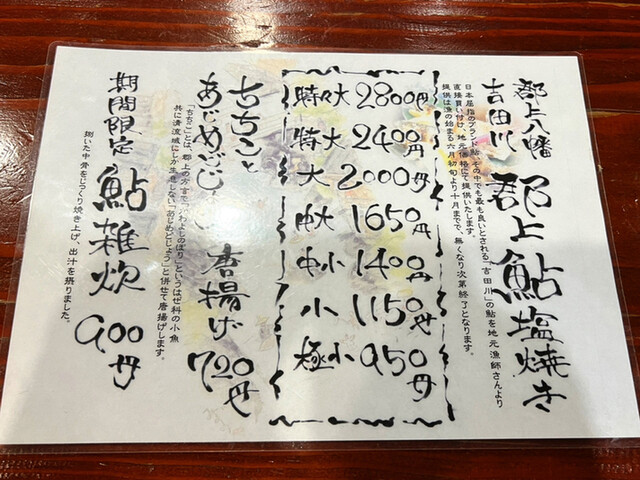 郡上八幡
吉田川 郡上鮎塩焼き
日本屈指のブランド鮎、その中でも最も良いとされる「吉田川」の鮎を地元漁師さんより
直接買い付け、地元価格にて提供いたします。
提供は漁の始まる六月初旬より十月までで、無くなり次第終了となります。
特々大 2800円
特大 2400円
大 2000円
中大 1650円
中小 1400円
小 1150円
極小 950円
ちちこと
あじめどじょう 唐揚げ 720円
「ちちこ」とは、郡上の方言で「かわよしのぼり」というはぜ科の小魚
共に清流域にしか生息しない「あじめどじょう」と併せて唐揚げします。
期間限定 鮎雑炊 900円
捌いた中骨をじっくり焼き上げ、出汁を摂りました。